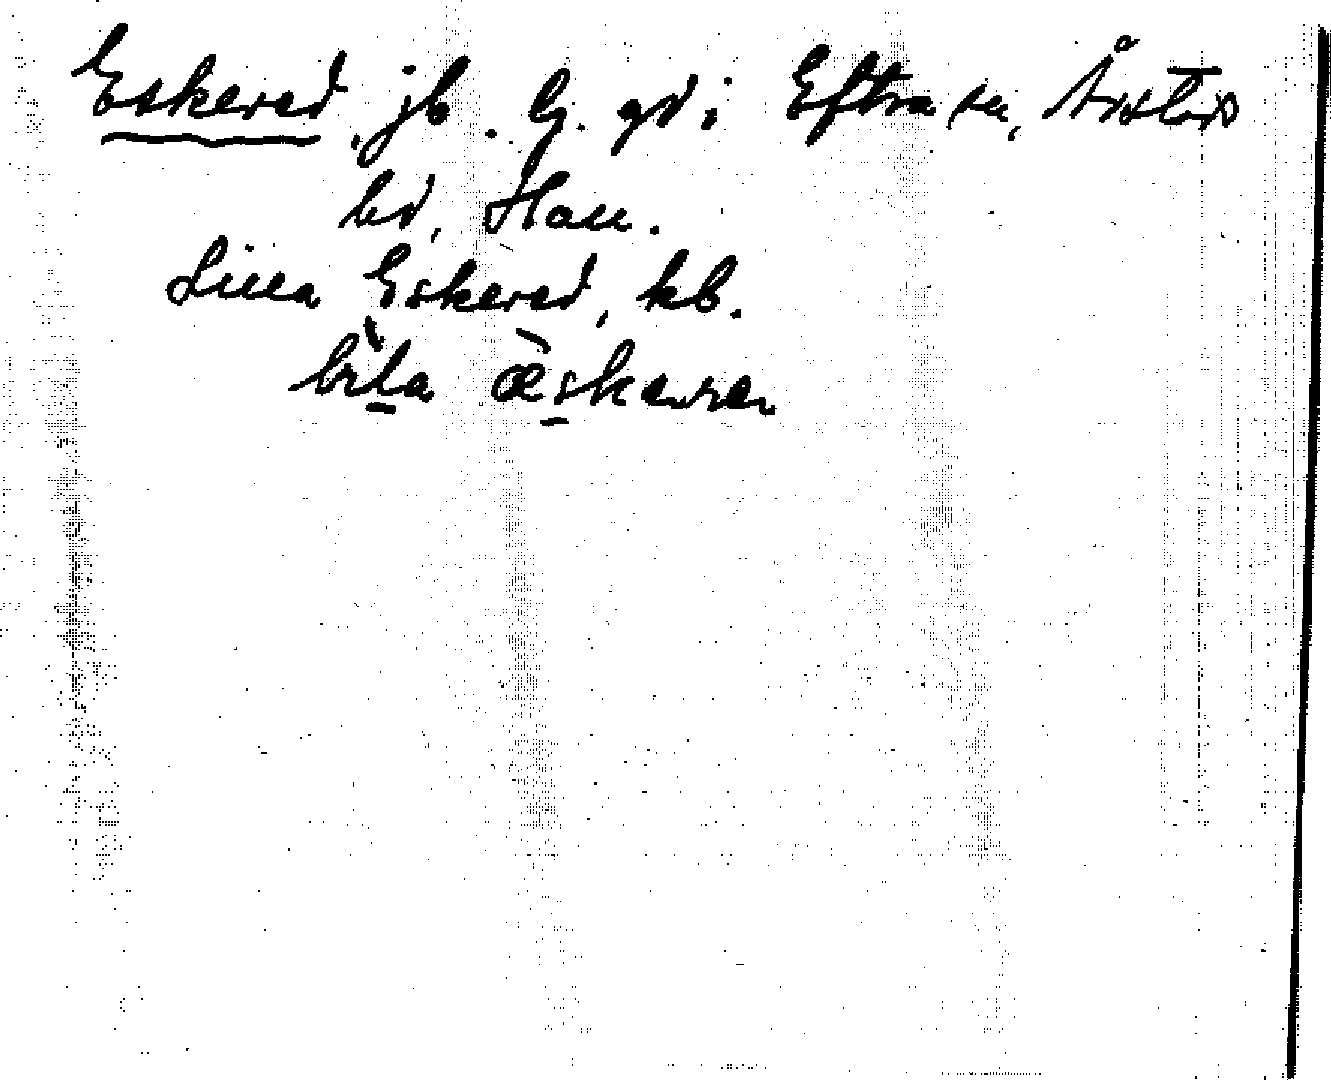 Eskered, jb. lj. gd i Eftra sn, Årstads
hd, Hall.
Lilla Eskered, kb.
lìla æ̀skered